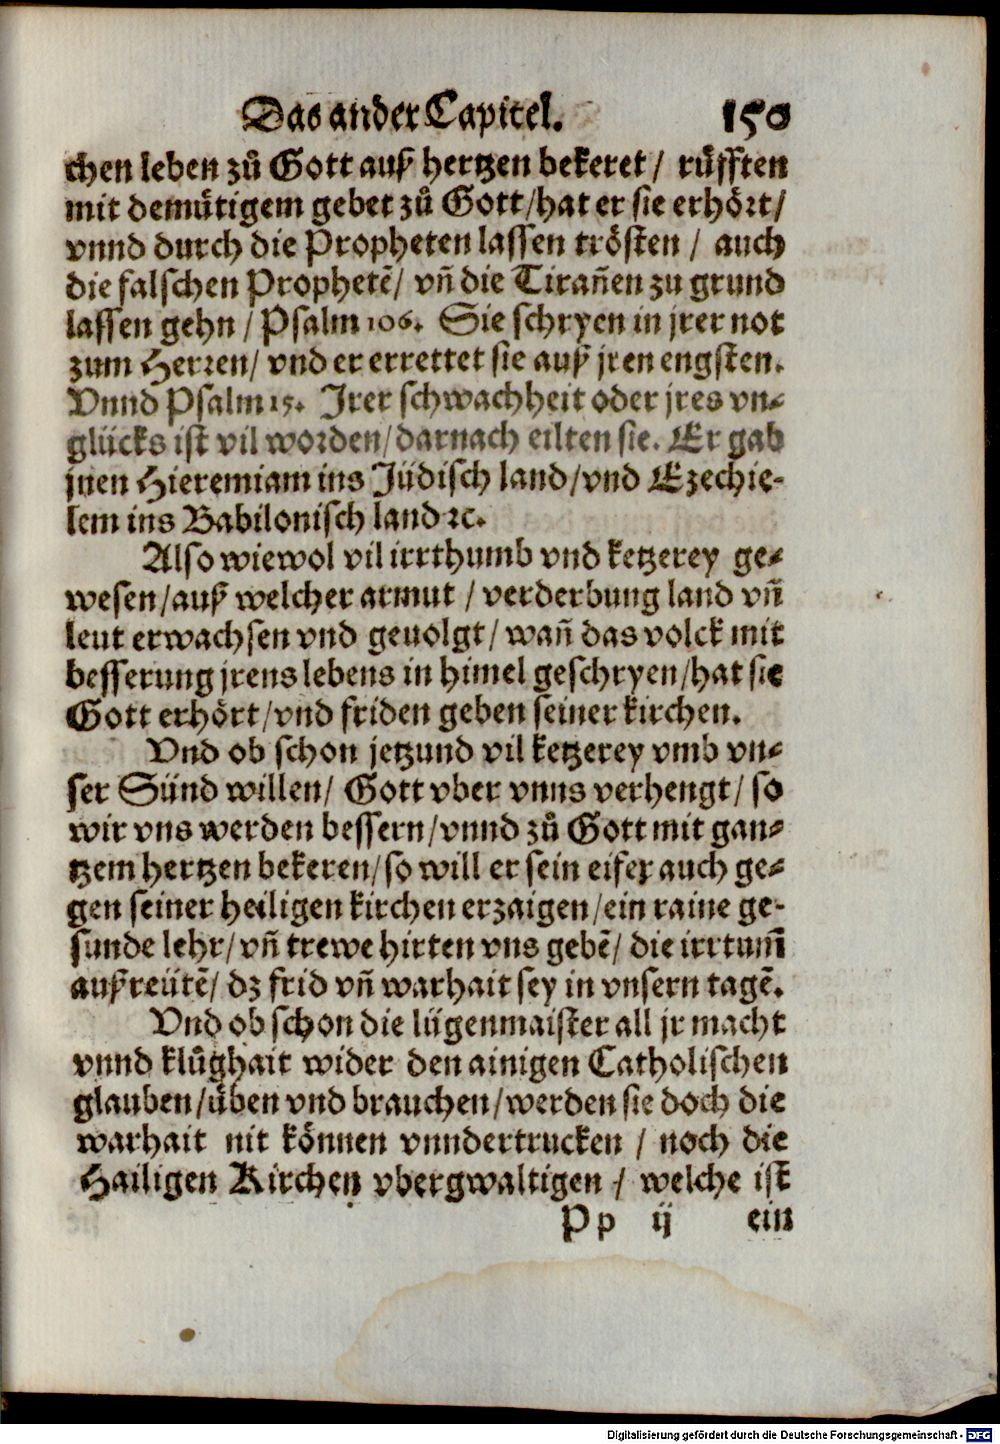 Das ander Capitel. 150
chen leben zuͦ Gott auß hertzen bekeret / ruͤfften
mit demuͤtigem gebet zuͦ Gott/hat er sie erhoͤrt/
vnnd durch die Propheten lassen troͤsten / auch
die falschen Prophetē/ vñ die Tirañen zu grund
lassen gehn / Psalm 106. Sie schryen in jrer not
zum Herren/ vnd er errettet sie auß jren engsten.
Vnnd Psalm 15. Jrer schwachheit oder jres vn⸗
gluͤcks ist vil worden/darnach eilten sie. Er gab
jnen Hieremiam ins Juͤdisch land/vnd Ezechie-
lem ins Babilonisch land ꝛc.
Also wiewol vil irrthumb vnd ketzerey ge⸗
wesen/auß welcher armut / verderbung land vñ
leut erwachsen vnd geuolgt/ wañ das volck mit
besserung jrens lebens in himel geschryen/hat sie
Gott erhoͤrt/vnd friden geben seiner kirchen.
Vnd ob schon jetzund vil ketzerey vmb vn⸗
ser Suͤnd willen/ Gott vber vnns verhengt/ so
wir vns werden bessern/vnnd zuͦ Gott mit gan⸗
tzem hertzen bekeren/so will er sein eifer auch ge⸗
gen seiner heiligen kirchen erzaigen/ein raine ge-
sunde lehr/vñ trewe hirten vns gebē/ die irrtum̄
außreuͤtē/ dz frid vñ warhait sey in vnsern tagē.
Vnd ob schon die luͤgenmaister all jr macht
vnnd kluͦghait wider den ainigen Catholischen
glauben/uͤben vnd brauchen/werden sie doch die
warhait nit koͤnnen vnndertrucken / noch die
Hailigen Kirchen vbergwaltigen / welche ist
Pp ij ein
Digitalisierung gefördert durch die Deutsche Forschungsgemeinschaft - DFG